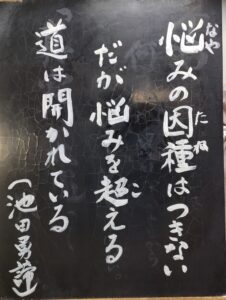 なや たね
悩みの因種はつきない
こ
だが悩みを超える
道は開かれている
(池田勇諦)